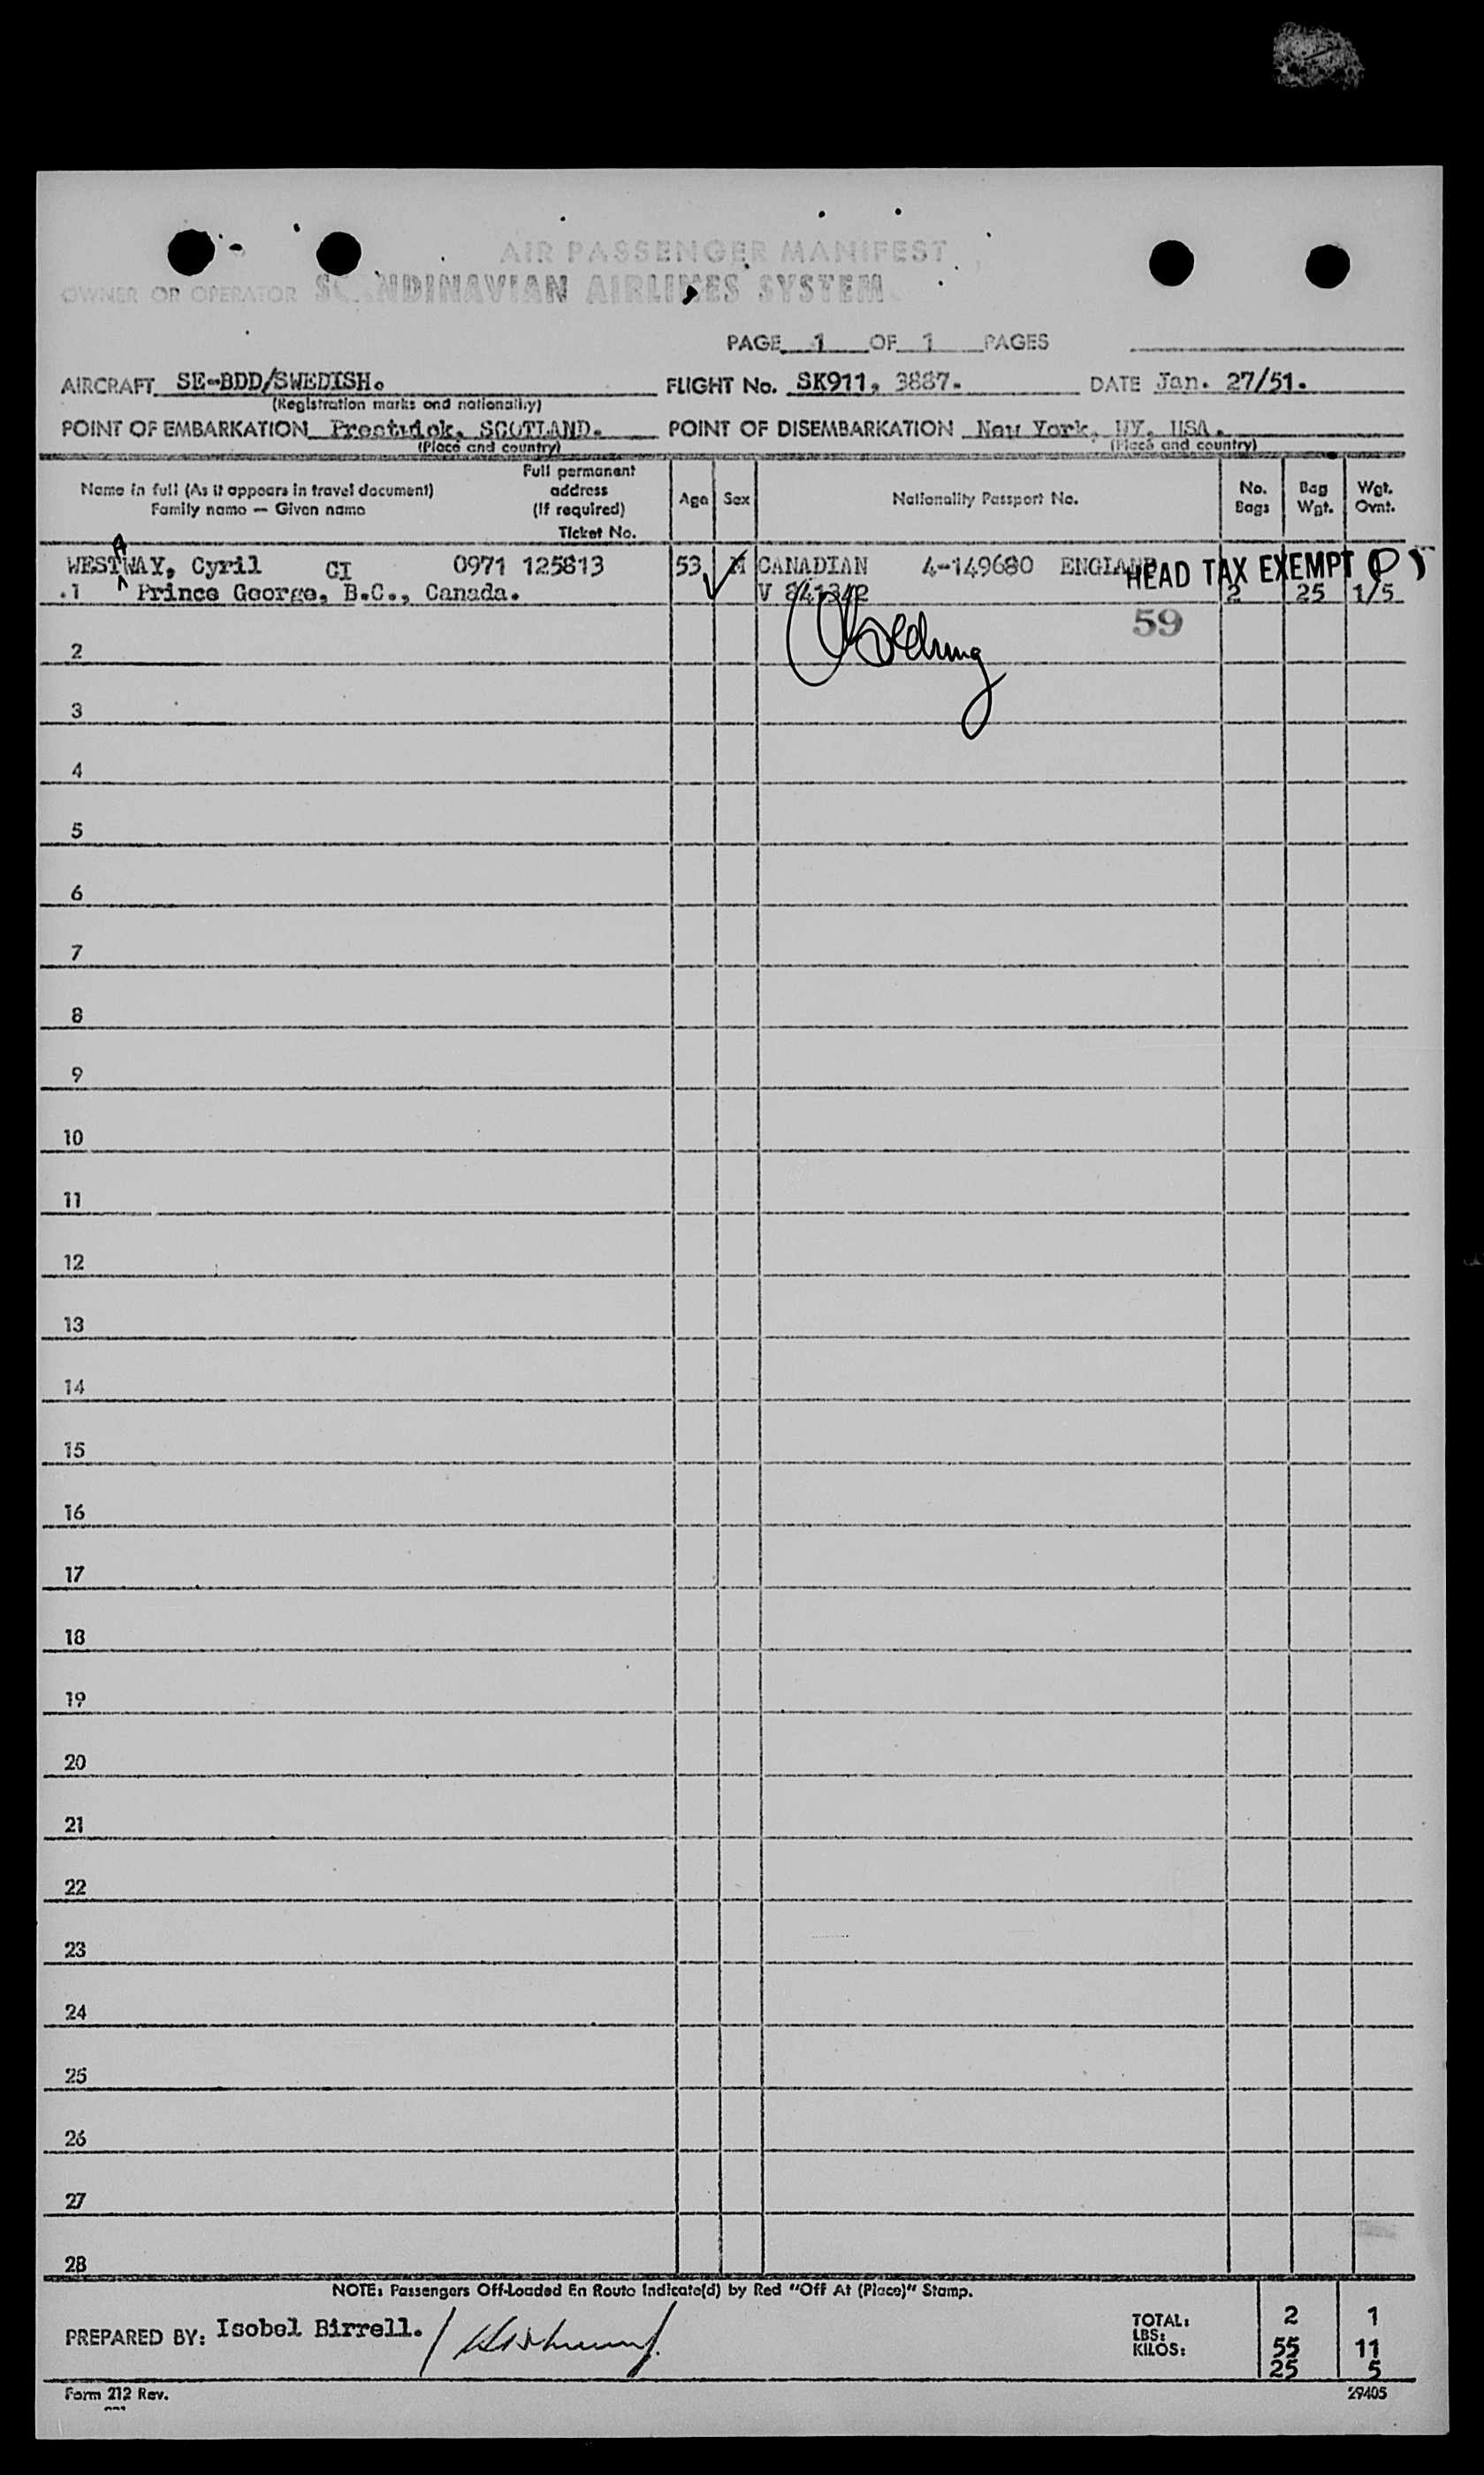 AIR PASSENGER MANIFEST
OWNER OR OPERATOR SCANDINAVIAN AIRLINES SYSTEM
PAGE 1 OF 1 PAGES
AIRCRAFT SE-BDD/SWEDISH. FLIGHT No. SK911, 3887. DATE Jan. 27/51.
(Registration marks and nationality)
POINT OF EMBARKATION Prestwick, SCOTLAND. POINT OF DISEMBARKATION New York, NY, USA.
(Place and country) (Place and country)
Name in full (As it appears in travel document) Family name — Given name Full permanent address (If required) Ticket No. Age Sex Nationality Passport No. No. Bags Bag Wgt. Wgt. Ovnt.
A
WESTWAY, Cyril CI 0971 125813 53 M CANADIAN 4-149680 ENGLAND HEAD TAX EXEMPT
.1 Prince George, B.C., Canada. V 841342 2 25 1/5
59
2
3
4
5
6
7
8
9
10
11
12
13
14
15
16
17
18
19
20
21
22
23
24
25
26
27
28
NOTE: Passengers Off-Loaded En Route Indicate(d) by Red "Off At (Place)" Stamp.
PREPARED BY: Isobel Birrell. TOTAL: 2 1
LBS: 55 11
KILOS: 25 5
Form 212 Rev. 29405